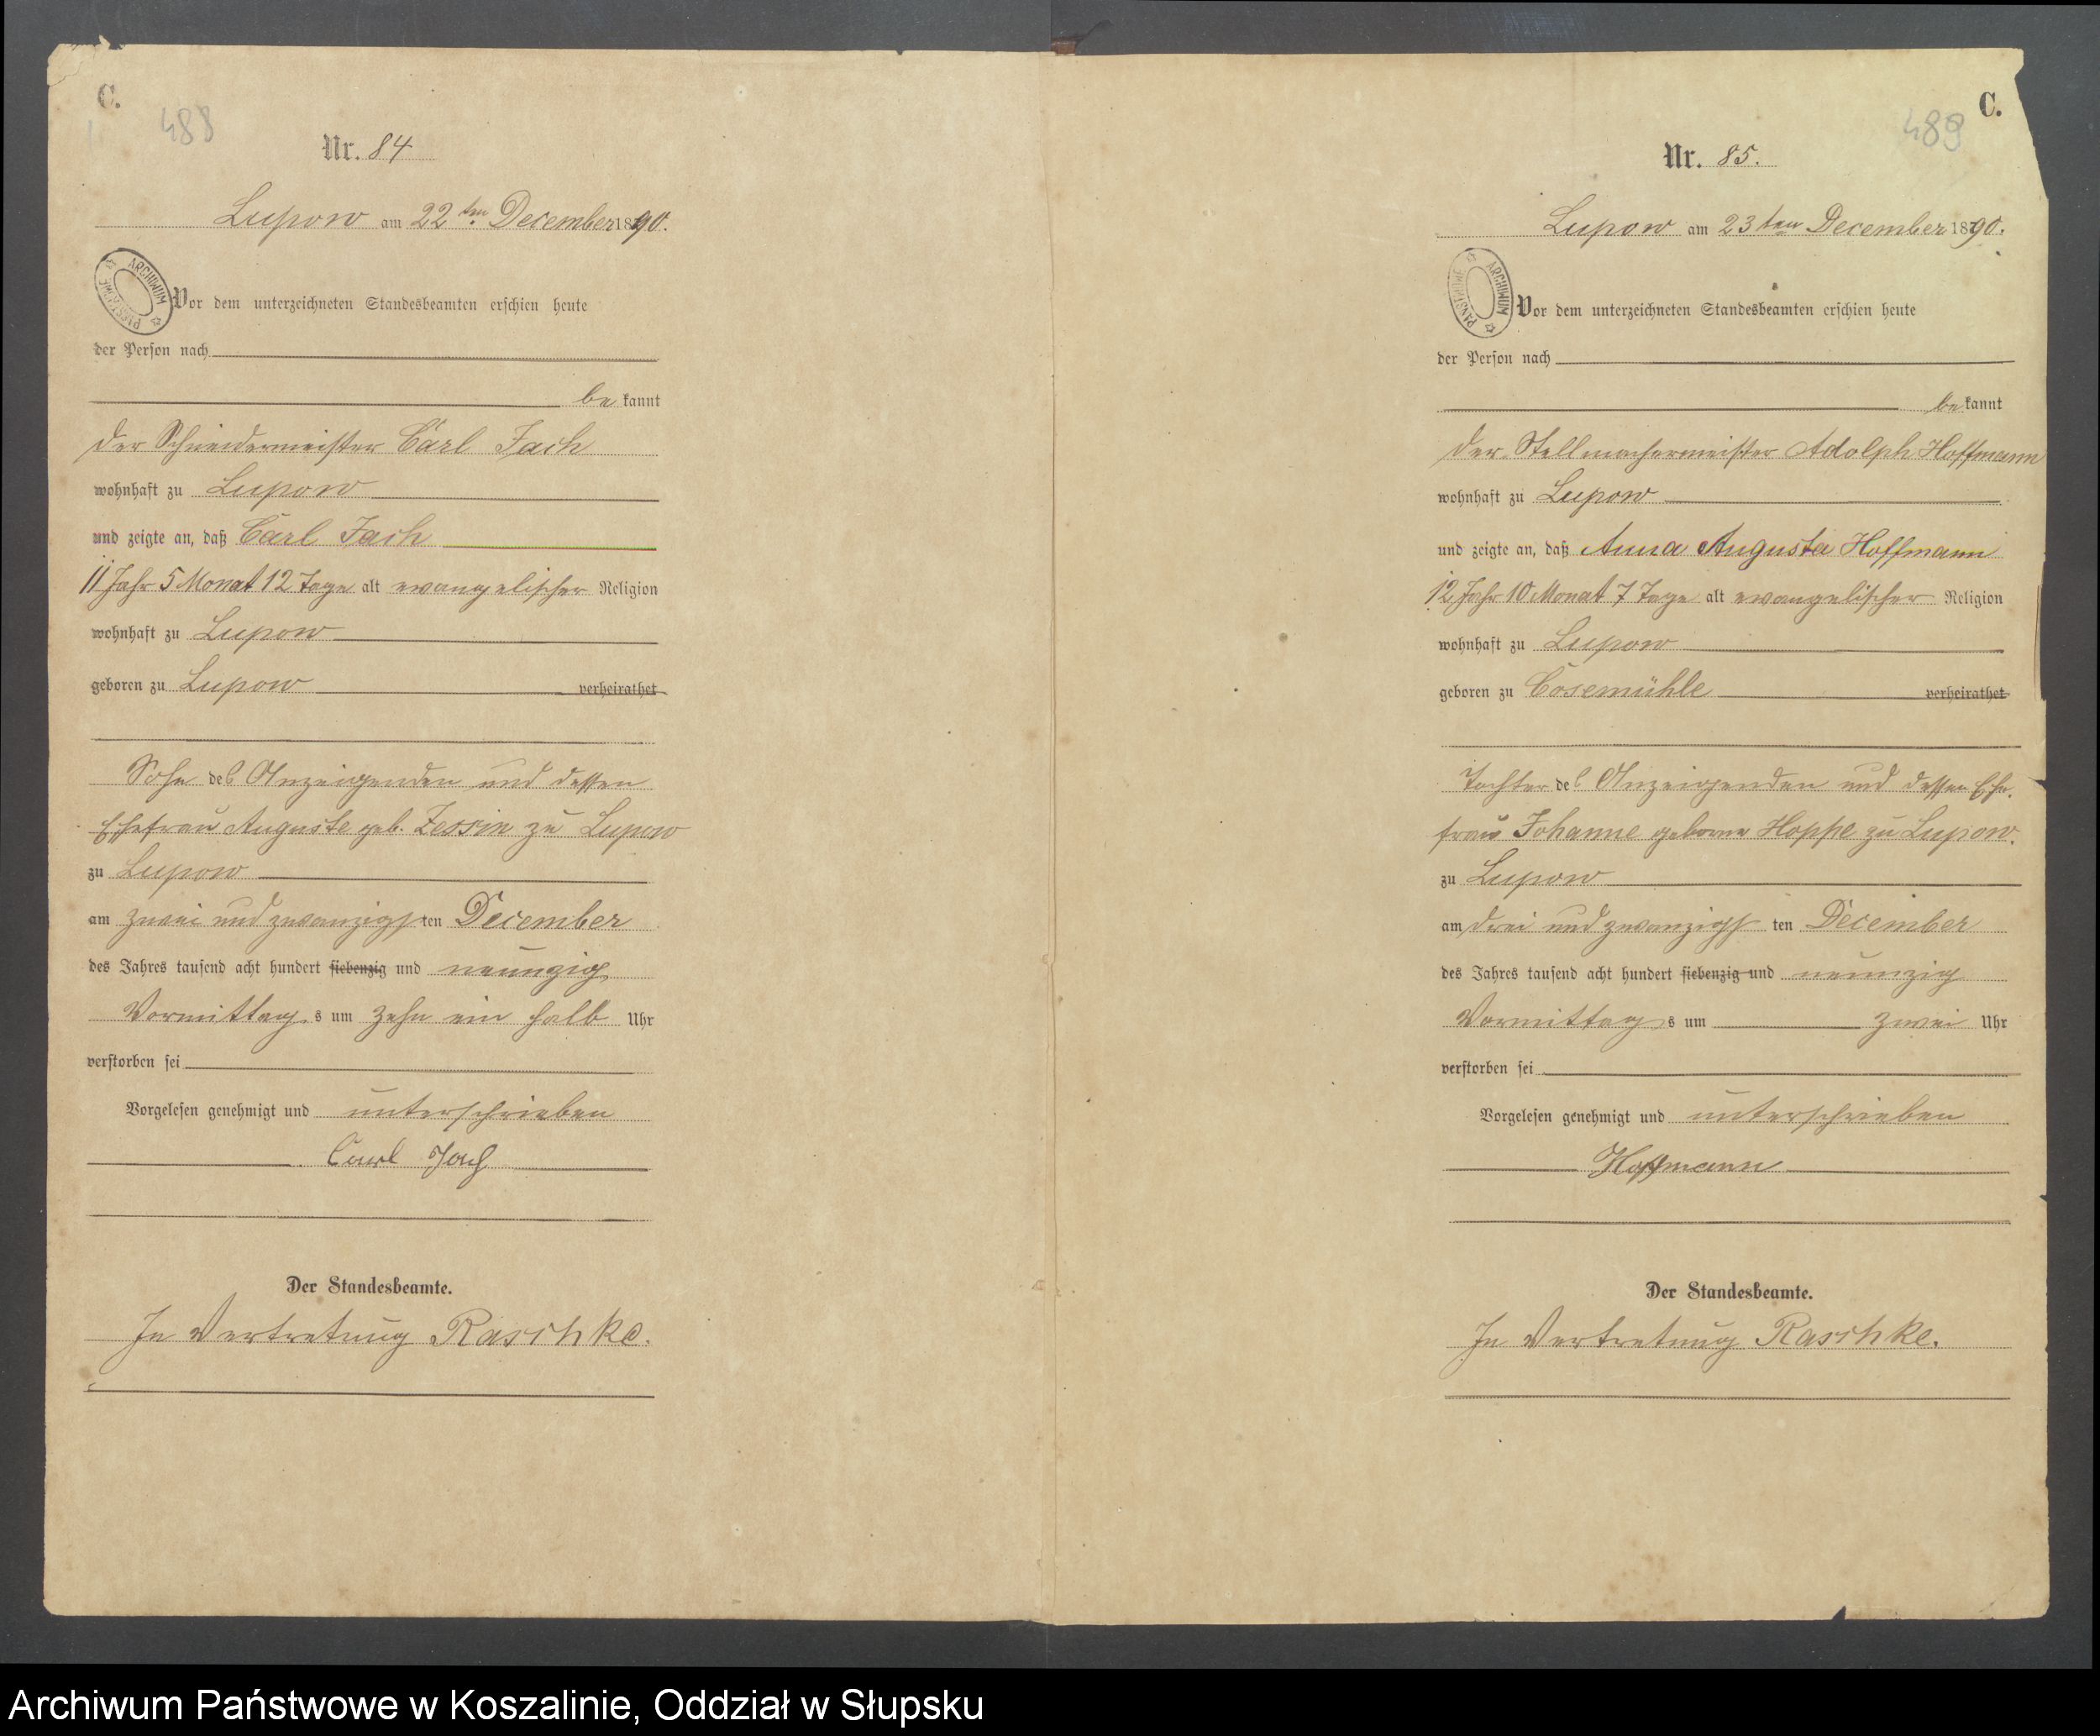 C.
488
Nr. 84
Lupow am 22ten December 1890.
ARCHIWUM PAŃSTWOWE
Vor dem unterzeichneten Standesbeamten erschien heute
der Person nach
bekannt
der Schneidermeister Carl Jach
wohnhaft zu Lupow
und zeigte an, daß Carl Jach
11 Jahr 5 Monat 12 Tage alt evangelischer Religion
wohnhaft zu Lupow
geboren zu Lupow verheirathet
Sohn des Anzeigenden und dessen
Ehefrau Auguste geb. Zessin zu Lupow
zu Lupow
am zwei und zwanzigsten December
des Jahres tausend acht hundert siebenzig und neunzig
Vormittags um zehn ein halb Uhr
verstorben sei
Vorgelesen genehmigt und unterschrieben
Carl Jach
Der Standesbeamte.
In Vertretung Raschke.
C.
489
Nr. 85.
Lupow am 23ten December 1890.
ARCHIWUM PAŃSTWOWE
Vor dem unterzeichneten Standesbeamten erschien heute
der Person nach
bekannt
der Stellmachermeister Adolph Hoffmann
wohnhaft zu Lupow
und zeigte an, daß Anna Auguste Hoffmann
12 Jahr 10 Monat 7 Tage alt evangelischer Religion
wohnhaft zu Lupow
geboren zu Cosemühle verheirathet
Tochter des Anzeigenden und dessen Ehe-
frau Johanne geborne Hoppe zu Lupow.
zu Lupow
am drei und zwanzigsten December
des Jahres tausend acht hundert siebenzig und neunzig
Vormittags um zwei Uhr
verstorben sei
Vorgelesen genehmigt und unterschrieben
Hoffmann
Der Standesbeamte.
In Vertretung Raschke.
Archiwum Państwowe w Koszalinie, Oddział w Słupsku